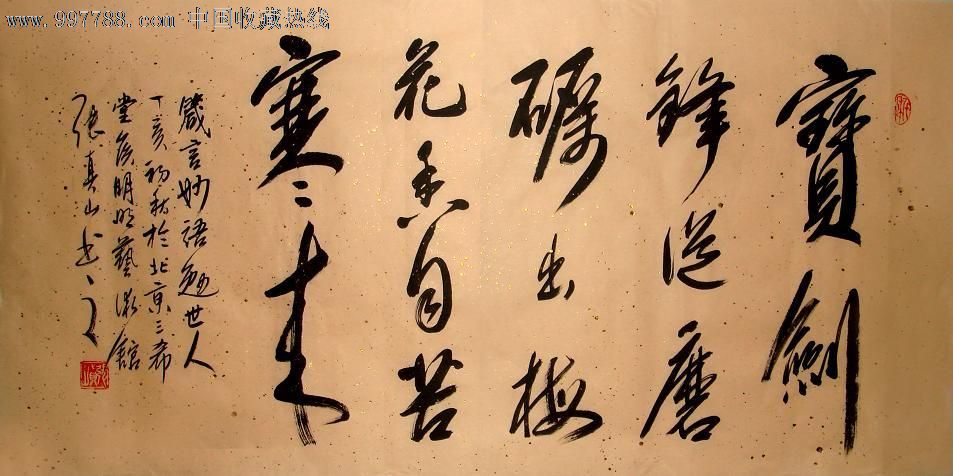 www.997788.com 中国收藏热线
寶劍
鋒從磨
礪出梅
花香自苦
寒來
箴言妙語勉世人
丁亥初秋於北京三希
堂侯明明藝術館
張真山書